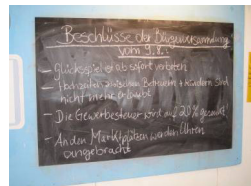 Beschlüsse der Bürgerversammlung
vom 9.8.:
– Glücksspiel ist ab sofort verboten
– Hochzeiten zwischen Betreuern + Kindern sind
nicht mehr erlaubt
– Die Gewerbesteuer wird auf 20% gesenkt
– An den Marktplätzen werden Uhren
angebracht